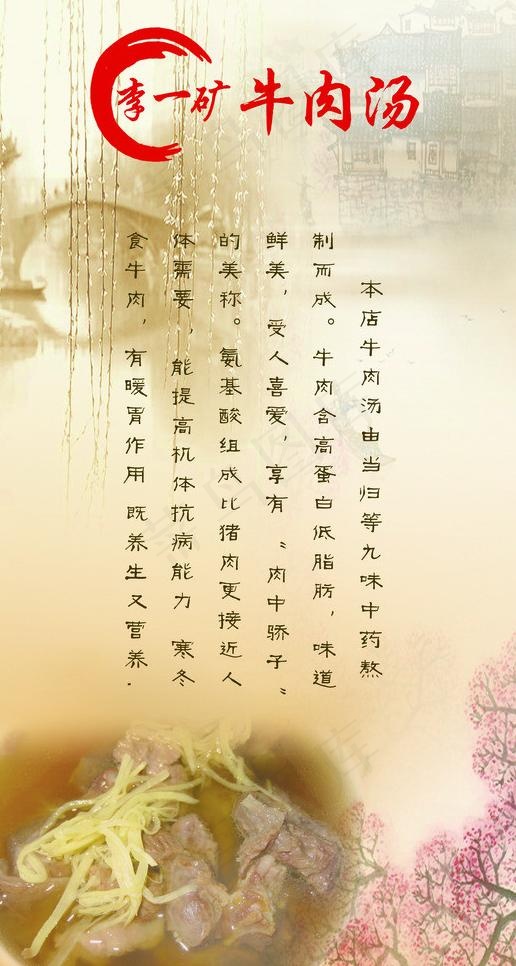 李一矿 牛肉汤
本店牛肉汤由当归等九味中药熬
制而成。牛肉含高蛋白低脂肪，味道
鲜美，受人喜爱，享有“肉中骄子”
的美称。氨基酸组成比猪肉更接近人
体需要，能提高机体抗病能力 寒冬
食牛肉，有暖胃作用 既养生又营养.